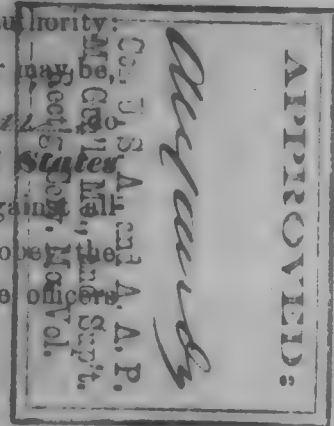 uthority:
r may be,
States
gainst all
obey the
e officers
APPROVED:
U. S. A. and A. A. P.
M. Gen'l, Mo., and Sup't.
Mo. Vol.